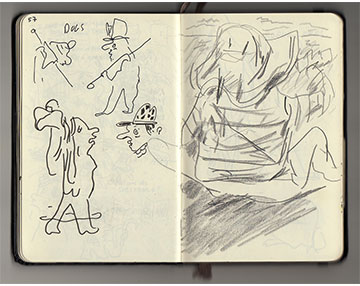 57
DOGS